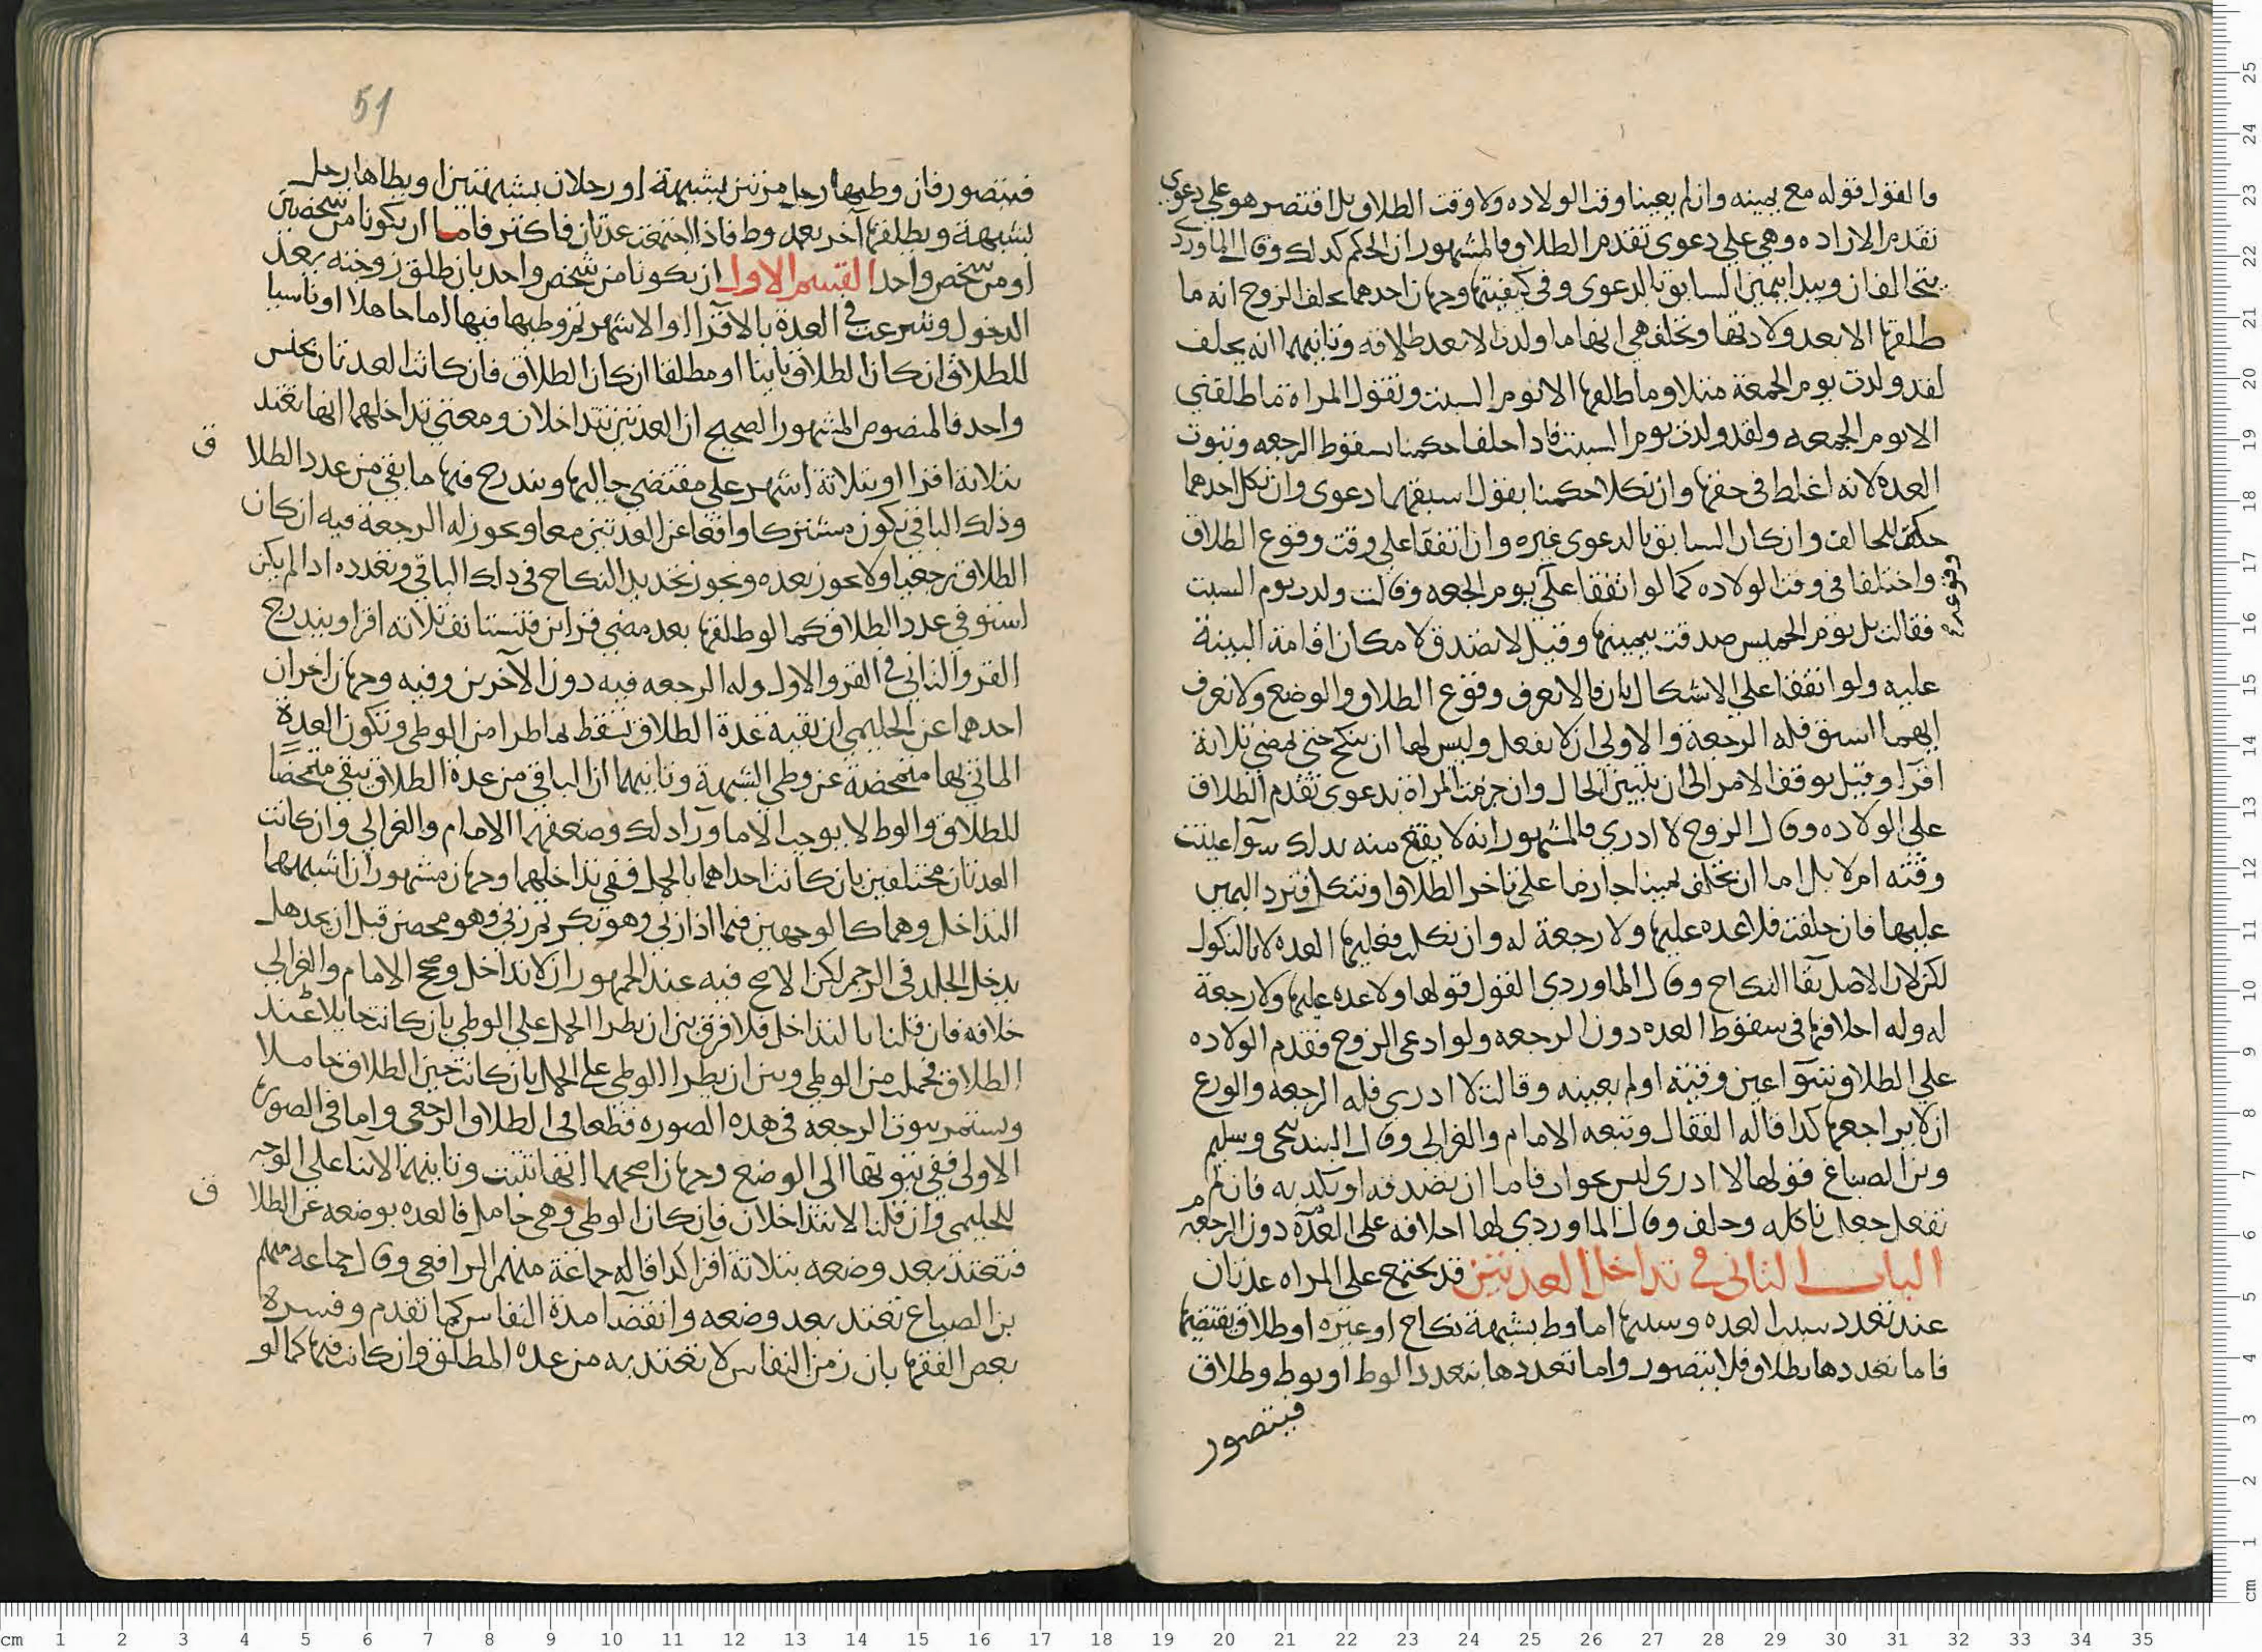 فالقول قوله مع يمينه وان لم يعينا وقت الولاده ولا وقت الطلاق بل اقتصر هو على دعوى
تقدم الاراده وهي على دعوى تقدم الطلاق فالمشهور ان الحكم كذلك وقال الماوردي
يتحالفان ويبدا بيمين السابق بالدعوى وفي كيفيتها وجهان احدهما يحلف الزوج انه ما
طلقها الا بعد ولادتها وتحلف هي انها ما ولدت الا بعد طلاقه وثانيهما انه يحلف
لقد ولدت يوم الجمعة مثلا وما طلقها الا يوم السبت وتقول المراة ما طلقني
الا يوم الجمعه ولقد ولدت يوم السبت فاذا حلفا حكمنا بسقوط الرجعه وثبوت
العده لانه اغلظ في حقها وان نكلا حكمنا بقول اسبقهما دعوى وان نكل احدهما
حكم للحالف وان كان السابق بالدعوى غيره وان اتفقا على وقت وقوع الطلاق
واختلفا في وقت الولاده كما لو اتفقا على يوم الجمعه وقالت ولدت يوم السبت
فقالت بل يوم الخميس صدقت بيمينها وقيل لا تصدق لامكان اقامة البينة
عليه ولو اتفقا على الاشكال بان قالا نعرف وقوع الطلاق والوضع ولا نعرف
ايهما اسبق فله الرجعة والاولى ان لا يفعل وليس لها ان تنكح حتى تمضي ثلاثة
اقرا وقيل يوقف الامر الى ان يتبين الحال وان جزمت المراة بدعوى تقدم الطلاق
على الولاده وقال الزوج لا ادري فالمشهور انه لا يقنع منه بذلك سوآ عينت
وقته ام لا بل اما ان يحلف يمينا جازما على تاخر الطلاق او ينكل فترد اليمين
عليها فان حلفت فلا عده عليها ولا رجعة له وان نكلت فعليها العده لا بالنكول
لكن لان الاصل بقا النكاح وقال الماوردي القول قولها ولا عده عليها ولا رجعة
له وله احلافها في سقوط العده دون الرجعه ولو ادعى الزوج فقدم الولاده
على الطلاق سوآ عين وقته او لم يعينه وقالت لا ادري فله الرجعة والورع
ان لا يراجعها كذا قاله القفال وتبعه الامام والغزالي وقال البندنيجي وسليم
وبن الصباغ قولها لا ادري ليس بجواب فاما ان تصدقه او تكذبه فان لم
تفعل جعل ناكله وحلف وقال الماوردي لها احلافه على العدة دون الرجعه
الباب الثاني في تداخل العدتين قد يجتمع على المراه عدتان
عند تعدد سبب العده وسببها اما وط بشبهة نكاح او غيره او طلاق يقتضيها
فاما تعددها بطلاق فلا يتصور واما تعددها بتعدد الوط او بوط وطلاق
فيتصور
51
فيتصور فان وطيها رجل مرتين بشبهة او رجلان بشبهتين او يطاها رجل
بشبهة ويطلقها آخر بعد وط فاذا اجتمعت عدتان فاكثر فاما ان يكونا من شخصين
او من شخص واحد القسم الاول ان يكونا من شخص واحد بان طلق زوجته بعد
الدخول وشرعت في العدة بالاقرا او الاشهر ثم وطيها فيها اما جاهلا او ناسيا
للطلاق ان كان الطلاق باينا او مطلقا ان كان الطلاق فان كانت العدتان بجنس
واحد فالمنصوص المشهور الصحيح ان العدتين تتداخلان ومعنى تداخلهما انها تعتد
بثلاثة اقرا او بثلاثة اشهر على مقتضى حالها ويندرج فيها ما بقي من عدد الطلاق
وذلك الباقي يكون مشتركا واقعا عن العدتين معا ويجوز له الرجعة فيه ان كان
الطلاق رجعيا ولا يجوز بعده ويجوز تجديد النكاح في ذلك الباقي وبعده اذا لم يكن
استوفى عدد الطلاق كما لو طلقها بعد مضي قراين فتستانف ثلاثه اقرا ويندرج
القرو الثاني في القرو الاول وله الرجعه فيه دون الآخرين وفيه وجهان اخران
احدهما عن الحليمي ان بقية عدة الطلاق تسقط بما طرا من الوطي وتكون العدة
الماتي بها متمحضة عن وطي الشبهة وثانيهما ان الباقي من عدة الطلاق يبقى متمحضا
للطلاق والوط لا يوجب الا ما ورآ ذلك وضعفهما الامام والغزالي وان كانت
العدتان مختلفين بان كانت احداهما بالحمل ففي تداخلهما وجهان مشهوران اشبههما
التداخل وهما كالوجهين فيما اذا زنى وهو بكر ثم زنى وهو محصن قبل ان يحد هل
يدخل الجلد في الرجم لكن الاصح فيه عند الجمهور ان لا تداخل وصحح الامام والغزالي
خلافه فان قلنا بالتداخل فلا فرق بين ان يطرا الحمل على الوطي بان كانت حايلا عند
الطلاق فحملت من الوطي وبين ان يطرا الوطي على الحمل بان كانت حين الطلاق حاملا
ويستمر ثبوت الرجعة في هذه الصوره قطعا في الطلاق الرجعي واما في الصورة
الاولى ففي ثبوتها الى الوضع وجهان اصحهما انها تثبت وثانيهما الابنا على الوجه
للحليمي وان قلنا لا تتداخلان فان كان الوطي وهي حامل فالعده بوضعه عن الطلاق
فتعتد بعد وضعه بثلاثة اقرا كذا قاله جماعة منهم الرافعي وقال جماعه منهم
بن الصباغ تعتد بعد وضعه وانقضا مدة النفاس كما تقدم وفسره
بعض الفقها بان زمن النفاس لا تعتد به من عده المطلق وان كانت فيها كما لو